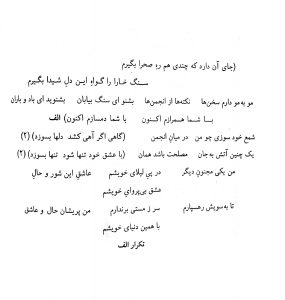 (جای آن دارد که چندی هم ره صحرا بگیرم
سنگ خارا را گواهِ این دل شیدا بگیرم
مو به مو دارم سخن‌ها نکته‌ها از انجمن‌ها بشنو ای سنگ بیابان بشنوید ای باد و باران
با شما همرازم اکنون با شما دمسازم اکنون) الف
شمع خود سوزی چو من در میانِ انجمن (گاهی اگر آهی کشد دلها بسوزد) (۲)
یک چنین آتش به‌جان مصلحت باشد همان (با عشق خود تنها شود تنها بسوزد) (۲)
من یکی مجنون دیگر در پی لیلای خویشم عاشق این شور و حالِ
عشق بی‌پروای خویشم
تا به سویش رهسپارم سر ز مستی برندارم من پریشان حال و عاشق
با همین دنیای خویشم
تکرار الف